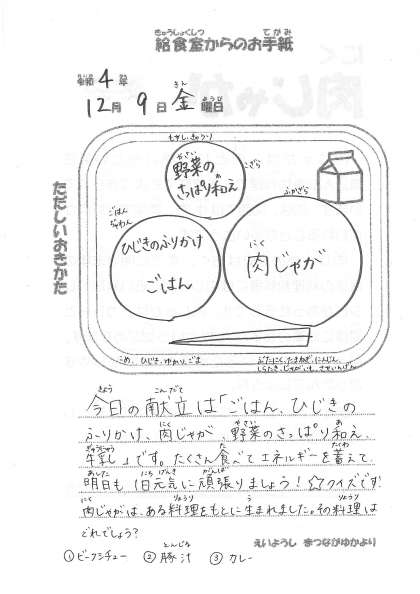 給食室からのお手紙
きゅうしょくしつ てがみ
令和4年
12月9日金曜日
ただしいおきかた
もやし、きゅうり
野菜のさっぱり和え
こざら
ごはんぢゃわん
ひじきのふりかけ
ごはん
ふかざら
肉じゃが
こめ、ひじき、ゆかり、ごま
ぶたにく、たまねぎ、にんじん、
しらたき、じゃがいも、さやいんげん
今日の献立は「ごはん、ひじきの
ふりかけ、肉じゃが、野菜のさっぱり和え、
牛乳」です。たくさん食べてエネルギーを蓄えて、
明日も1日元気に頑張りましょう！☆クイズです！
肉じゃがは、ある料理をもとに生まれました。その料理は
どれでしょう？
えいようし まつながゆかより
①ビーフシチュー ②豚汁 ③カレー